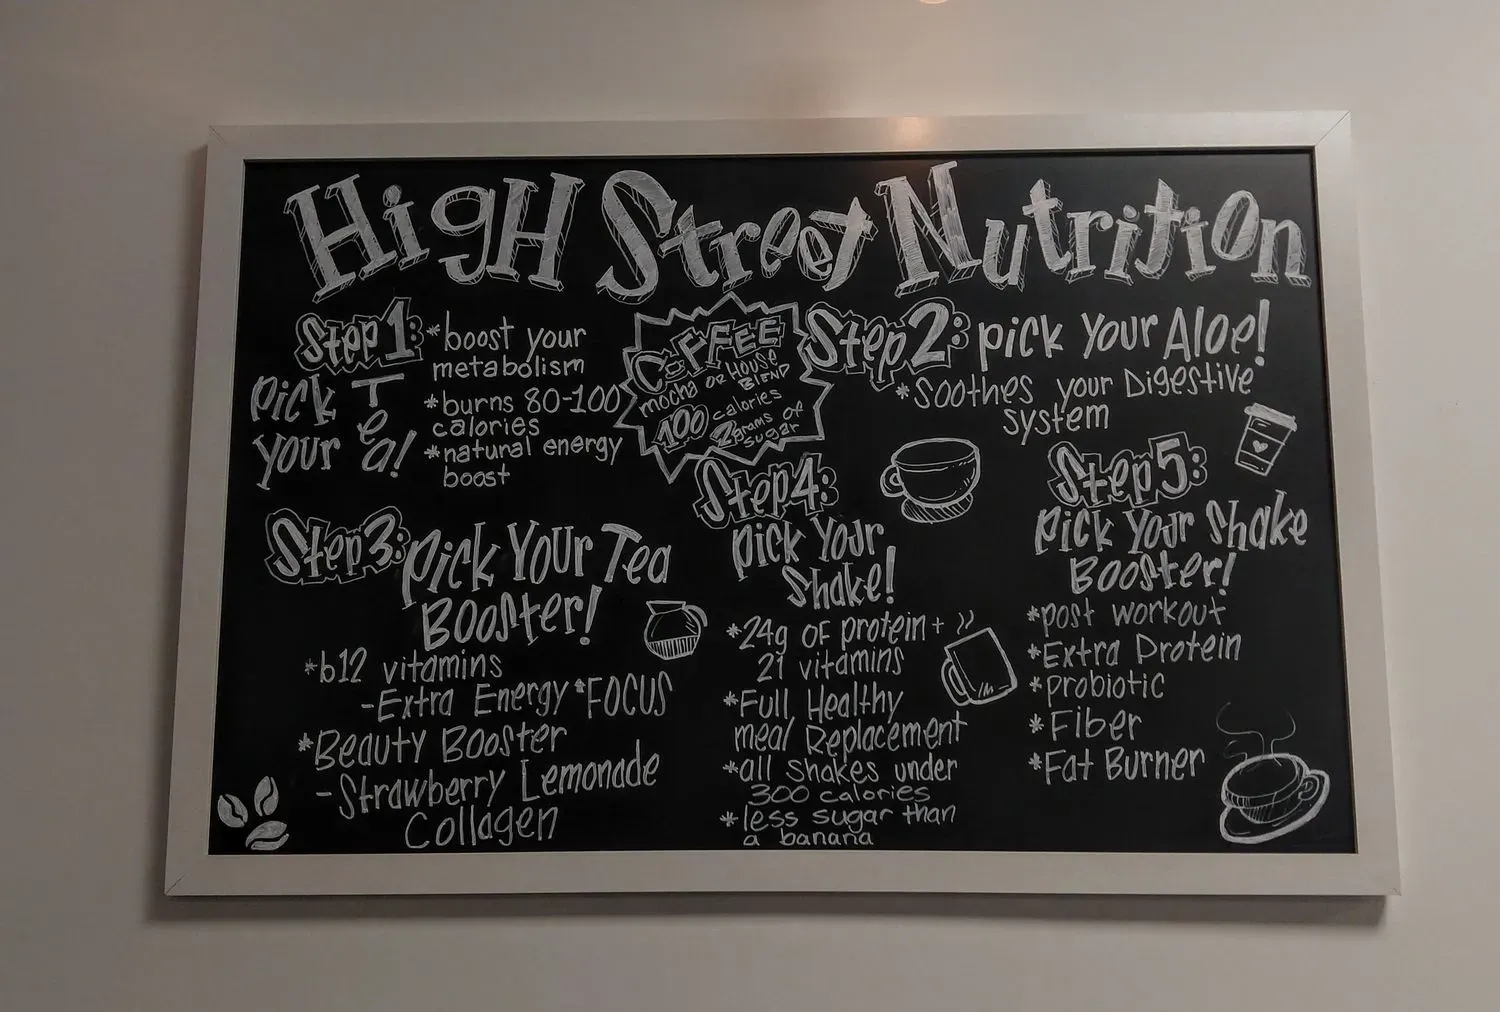 HigH Street Nutrition
Step 1:
Pick
Your
Tea!
*boost your
metabolism
*burns 80-100
calories
*natural energy
boost
COFFEE
mocha OR HOUSE
BLEND
100 calories
2 grams of
sugar
Step 2: pick Your Aloe!
*Soothes your Digestive
system
Step 3: Pick Your Tea
Booster!
*b12 vitamins
-Extra Energy *FOCUS
*Beauty Booster
-Strawberry Lemonade
Collagen
Step 4:
Pick Your
Shake!
*24g OF protein +
21 vitamins
*Full Healthy
meal Replacement
*all shakes under
300 calories
*less sugar than
a banana
Step 5:
Pick Your Shake
Booster!
*post workout
*Extra Protein
*probiotic
*Fiber
*Fat Burner